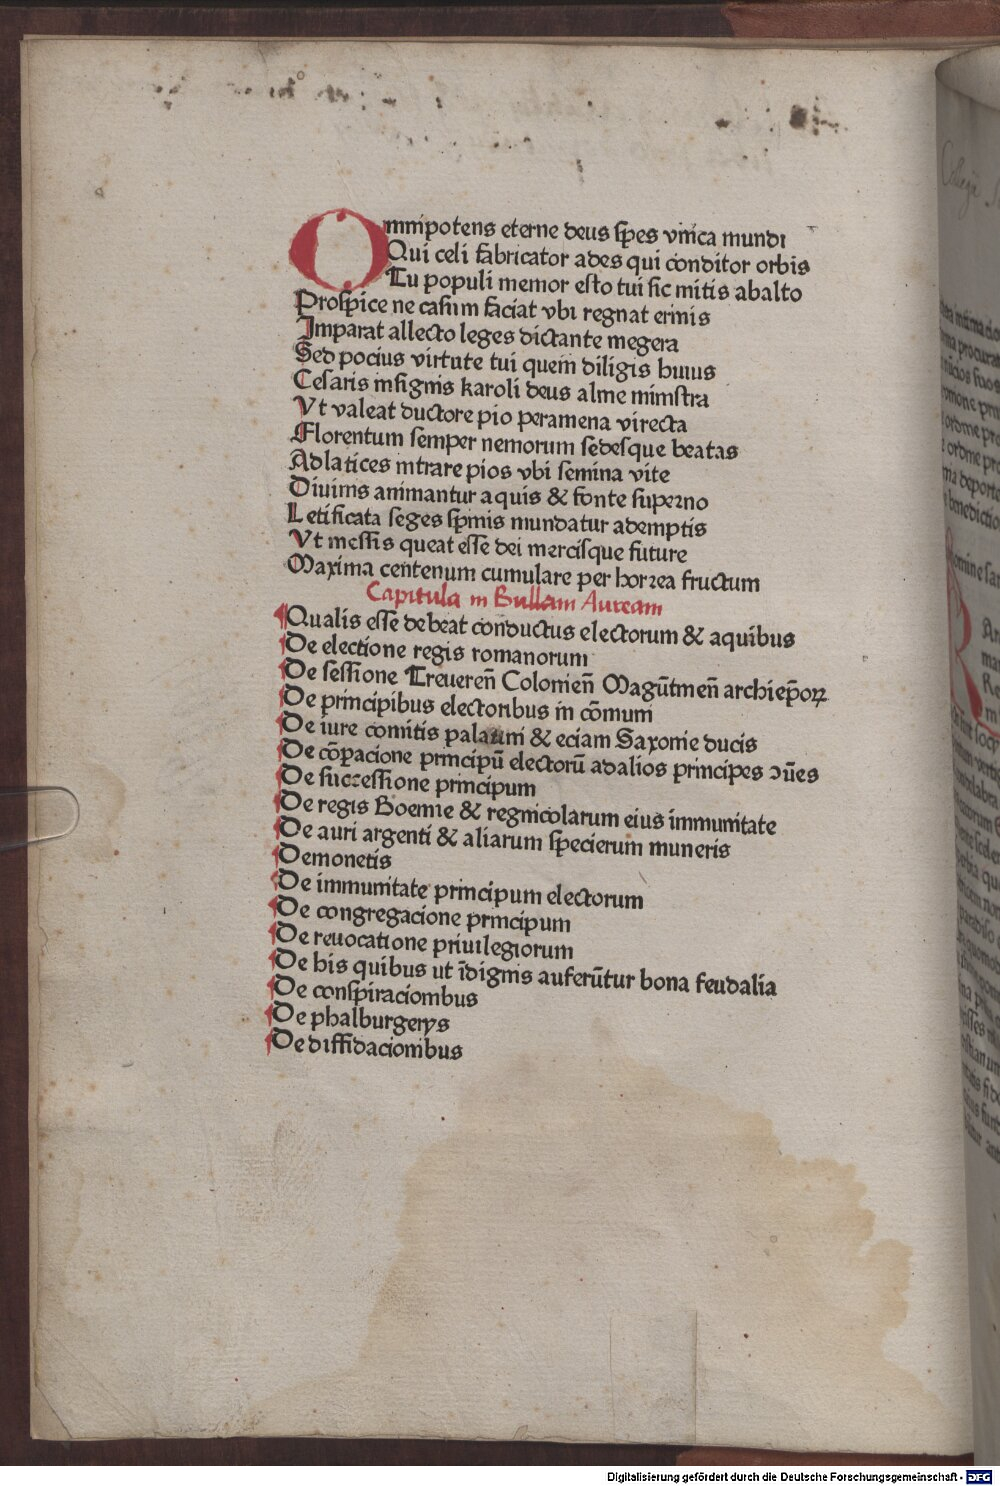 Omnipotens eterne deus spes vnica mundi
Qui celi fabricator ades qui conditor orbis
Tu populi memor esto tui sic mitis abalto
Prospice ne casum faciat vbi regnat erinis
Imparat allecto leges dictante megera
Sed pocius virtute tui quem diligis huius
Cesaris insignis karoli deus alme ministra
Vt valeat ductore pio peramena virecta
Florentum semper nemorum sedesque beatas
Adlatices intrare pios vbi semina vite
Diuinis animantur aquis & fonte superno
Letificata seges spinis mundatur ademptis
Vt messis queat esse dei mercisque future
Maxima centenum cumulare per horrea fructum
Capitula in Bullam Auream
¶Qualis esse debeat conductus electorum & aquibus
¶De electione regis romanorum
¶De sessione Treuereñ Colonieñ Magūtineñ archiep̄oꝝ
¶De principibus electoribus in cōmuni
¶De iure comitis palatini & eciam Saxonie ducis
¶De cōpacione principū electorū adalios principes ↄūes
¶De successione principum
¶De regis Boemie & regnicolarum eius immunitate
¶De auri argenti & aliarum specierum muneris
¶Demonetis
¶De immunitate principum electorum
¶De congregacione principum
¶De reuocatione priuilegiorum
¶De his quibus ut īdignis auferūtur bona feudalia
¶De conspiracionibus
¶De phalburgerys
¶De diffidacionibus
Digitalisierung gefördert durch die Deutsche Forschungsgemeinschaft - DFG